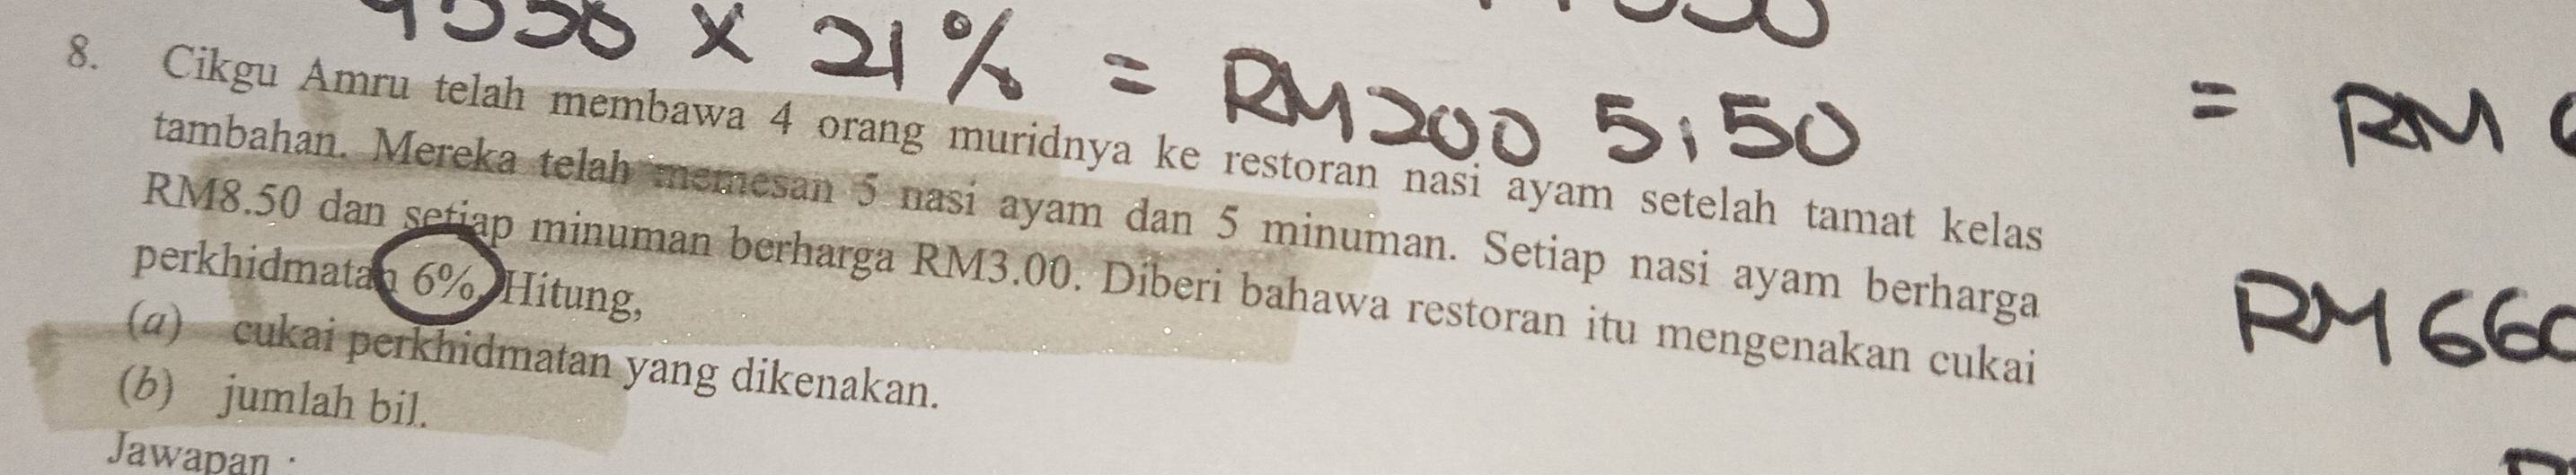 × 21% = RM2005.50
= RM
8. Cikgu Amru telah membawa 4 orang muridnya ke restoran nasi ayam setelah tamat kelas
tambahan. Mereka telah memesan 5 nasi ayam dan 5 minuman. Setiap nasi ayam berharga
RM8.50 dan setiap minuman berharga RM3.00. Diberi bahawa restoran itu mengenakan cukai
perkhidmatan 6%. Hitung,
RM660
(a) cukai perkhidmatan yang dikenakan.
(b) jumlah bil.
Jawapan :